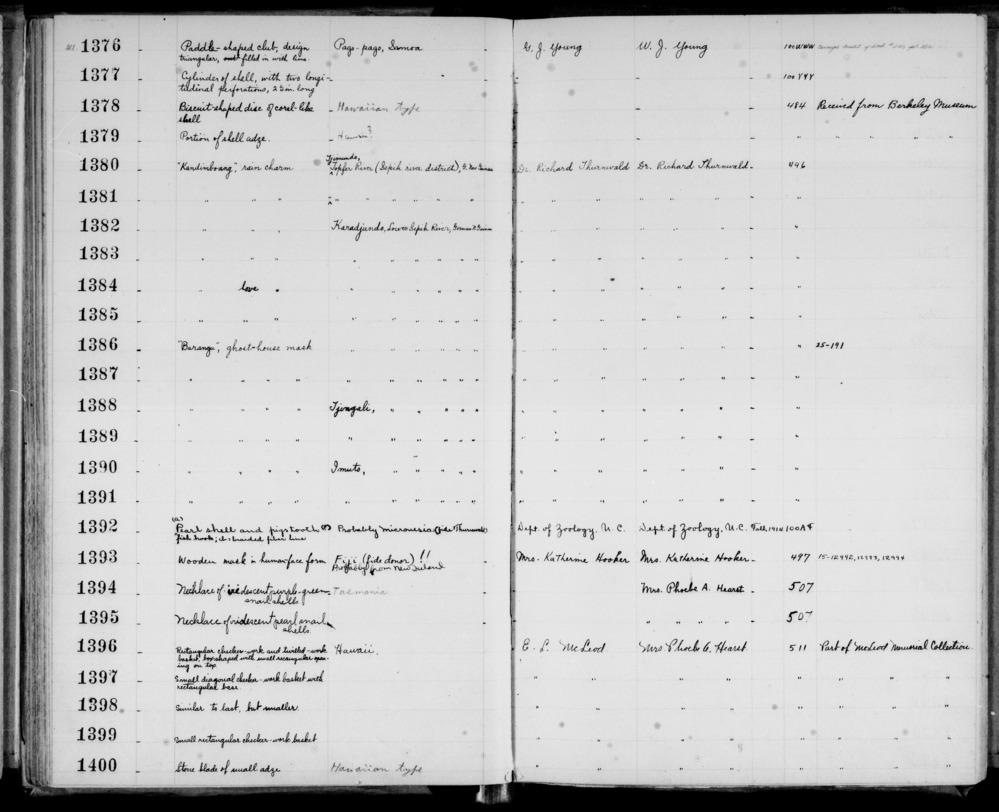 1376 - Paddle-shaped club, design Pago-pago, Samoa - G. J. Young W. J. Young 100WWW
triangular, filled in with lime.
1377 - Cylinder of shell, with two longi- - " " 100YYY
tudinal perforations, 25in. long
1378 - Biscuit-shaped disc of coral-like - Hawaiian type - 484 Received from Berkeley Museum
shell
1379 - Portion of shell adze. - Hawaii? - " " " " "
Tjimundo,
1380 - "Kandimboang", rain charm Töpfer River (Sepik river district), G. New Guinea Dr. Richard Thurnwald Dr. Richard Thurnwald - 496
1381 - " " " " " " " " " - " " " " " " - "
1382 - " " " Karadjundo, Lower Sepik River, German N. Guinea - " " " " " " - "
1383 - " " " " " " " " " - " " " " " " - "
1384 - " love " " " " " " " - " " " " " " - "
1385 - " " " " " " " " " - " " " " " " - "
1386 - "Barangu", ghost-house mask " " " " " " - " " " " " " - " 25-191
1387 - " " " " " " " " " " - " " " " " " - "
1388 - " " " " Tjingali, " " " " " - " " " " " " - "
1389 - " " " " " " " " " " - " " " " " " - "
1390 - " " " " Imuto, " " " " " - " " " " " " - "
1391 - " " " " " " " " " " - " " " " " " - "
(a)
1392 - Pearl shell and pigs tooth Probably Micronesia (fide Thurnwald) Dept. of Zoology, U. C. Dept. of Zoology, U. C. Fall, 1914
fish hook; b- braided fiber line
1393 - Wooden mask in human face form Fiji (fide donor) !! Mrs. Katherine Hooker Mrs. Katherine Hooker - 497 15-12992, 12993, 12994
Probably from New Ireland
1394 - Necklace of iridescent purple-green Tasmania - Mrs. Phoebe A. Hearst - 507
snail shells
1395 - Necklace of iridescent pearl snail " " " " - 507
shells.
1396 - Rectangular checker-work and twilled-work Hawaii. - E. L. McLeod Mrs. Phoebe A. Hearst 511 Part of McLeod Memorial Collection.
basket, box shaped with small rectangular open-
ing on top
1397 - Small diagonal checker-work basket with " " " " " " " " " " "
rectangular base.
1398 - Similar to last, but smaller " " " " " " " " " " "
1399 - Small rectangular checker-work basket " " " " " " " " " " "
1400 - Stone blade of small adze Hawaiian type " " " " " " " " " " "